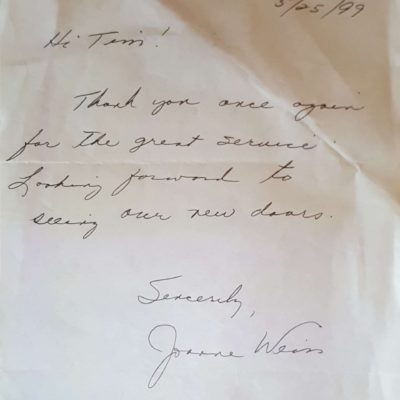 3/25/99
Hi Terri!
Thank you once again
for the great service
Looking forward to
seeing our new doors.
Sincerely,
Joanne Weiss